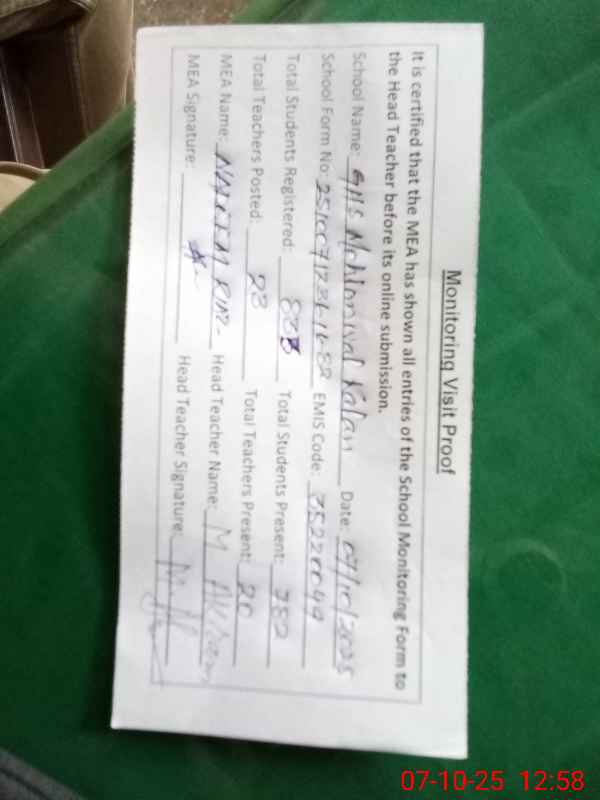 Monitoring Visit Proof
It is certified that the MEA has shown all entries of the School Monitoring Form to
the Head Teacher before its online submission.
School Name: GHS Kalan Date: 07/10/2025
School Form No: EMIS Code: 35220049
Total Students Registered: Total Students Present: 782
Total Teachers Posted: 23 Total Teachers Present: 20
MEA Name: Head Teacher Name: M
MEA Signature: Head Teacher Signature:
07-10-25 12:58